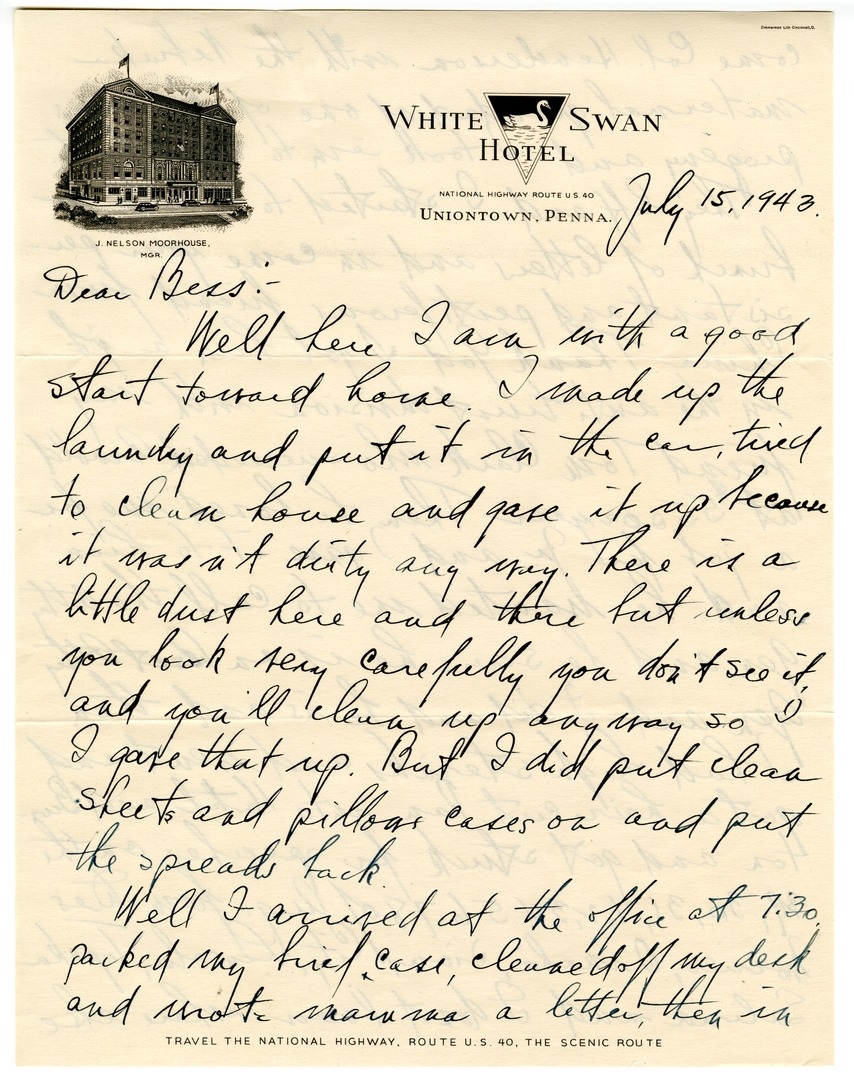 Zimmerman Lith Cincinnati, O.
WHITE SWAN
HOTEL
NATIONAL HIGHWAY ROUTE U.S. 40
UNIONTOWN, PENNA.
J. NELSON MOORHOUSE,
MGR.
July 15, 1943.
Dear Bess:-
Well here I am with a good
start toward home. I made up the
laundry and put it in the car, tried
to clean house and gave it up because
it wasn't dirty any way. There is a
little dust here and there but unless
you look very carefully you don't see it,
and you'll clean up anyway so
I gave that up. But I did put clean
sheets and pillow cases on and put
the spreads back.
Well I arrived at the office at 7:30,
packed my brief case, cleaned off my desk
and wrote mamma a letter, then in
TRAVEL THE NATIONAL HIGHWAY, ROUTE U.S. 40, THE SCENIC ROUTE